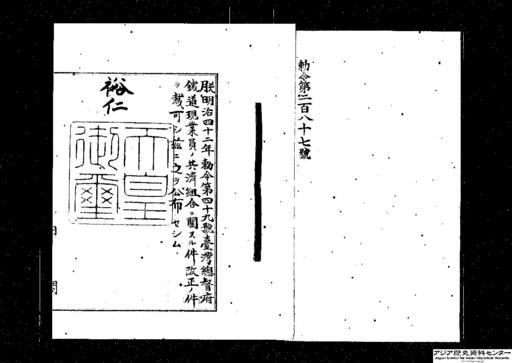 勅令第二百八十七號
朕明治四十二年勅令第四十九號臺灣總督府
鐵道現業員ノ共濟組合ニ關スル件改正ノ件
ヲ裁可シ茲ニ之ヲ公布セシム
裕仁
天皇
御璽
アジア歴史資料センター
Japan Center for Asian Historical Records